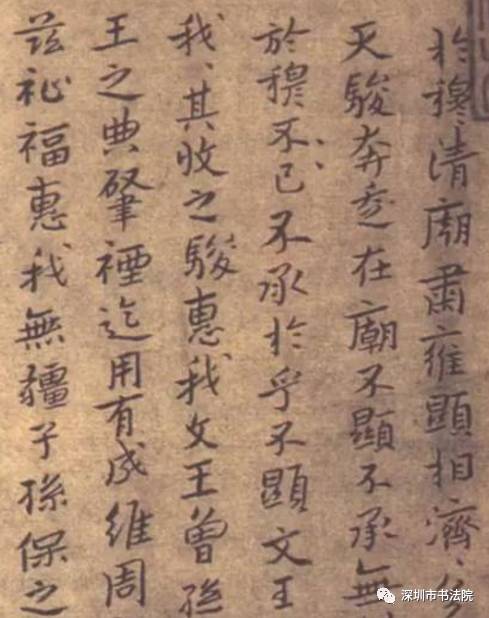 於穆清廟肅雍顯相濟、
天駿奔走在廟不顯不承無
於穆不已不承於乎不顯文王
我、其收之駿惠我文王曾孫
王之典肇禋迄用有成維周
茲祉福惠我無疆子孫保之
深圳市书法院